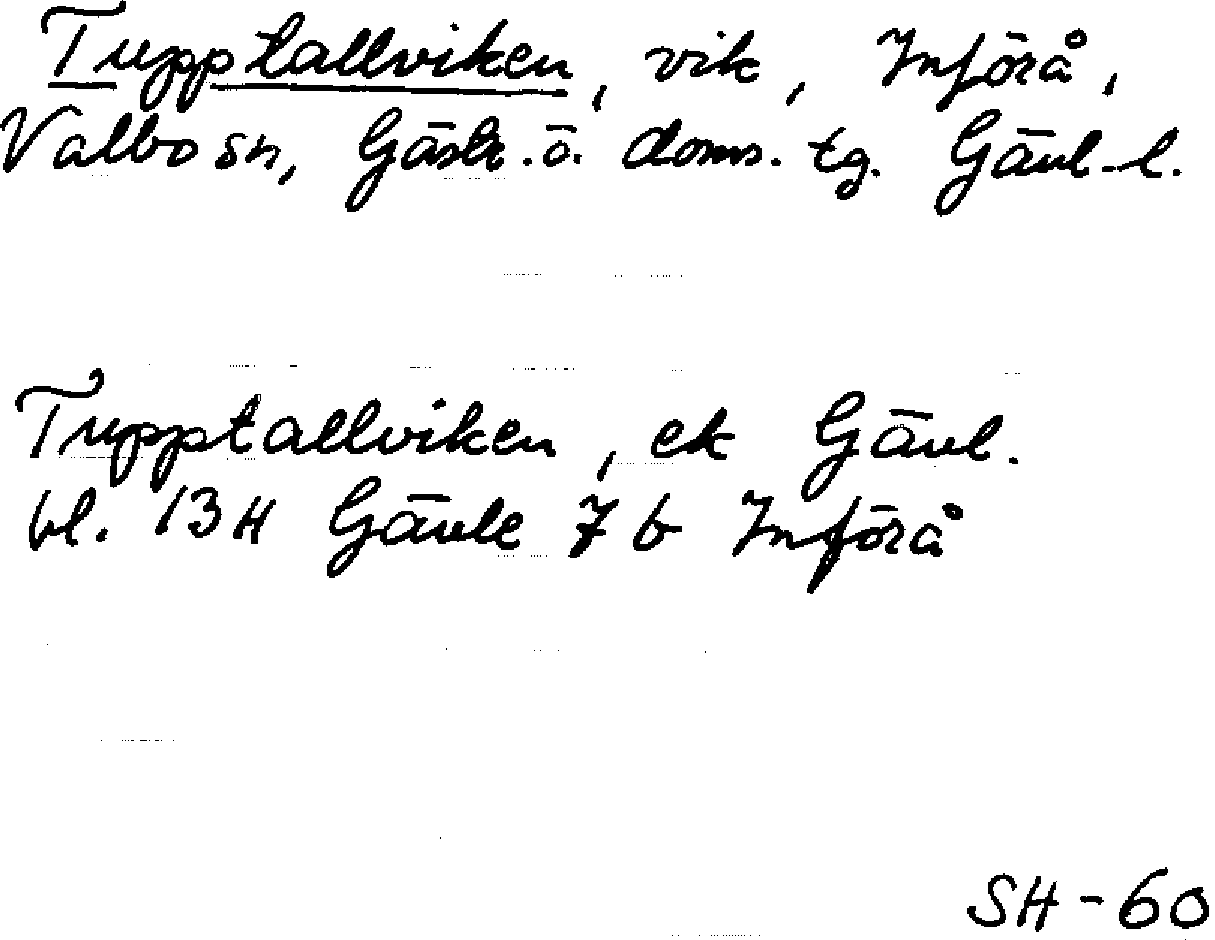 Tupptallviken, vik, Införå,
Valbo sn, Gästr. ö. doms. tg. Gävl. l.
Tupptallviken, ek Gävl.
bl. 13H Gävle 7 b Införå
SH-60